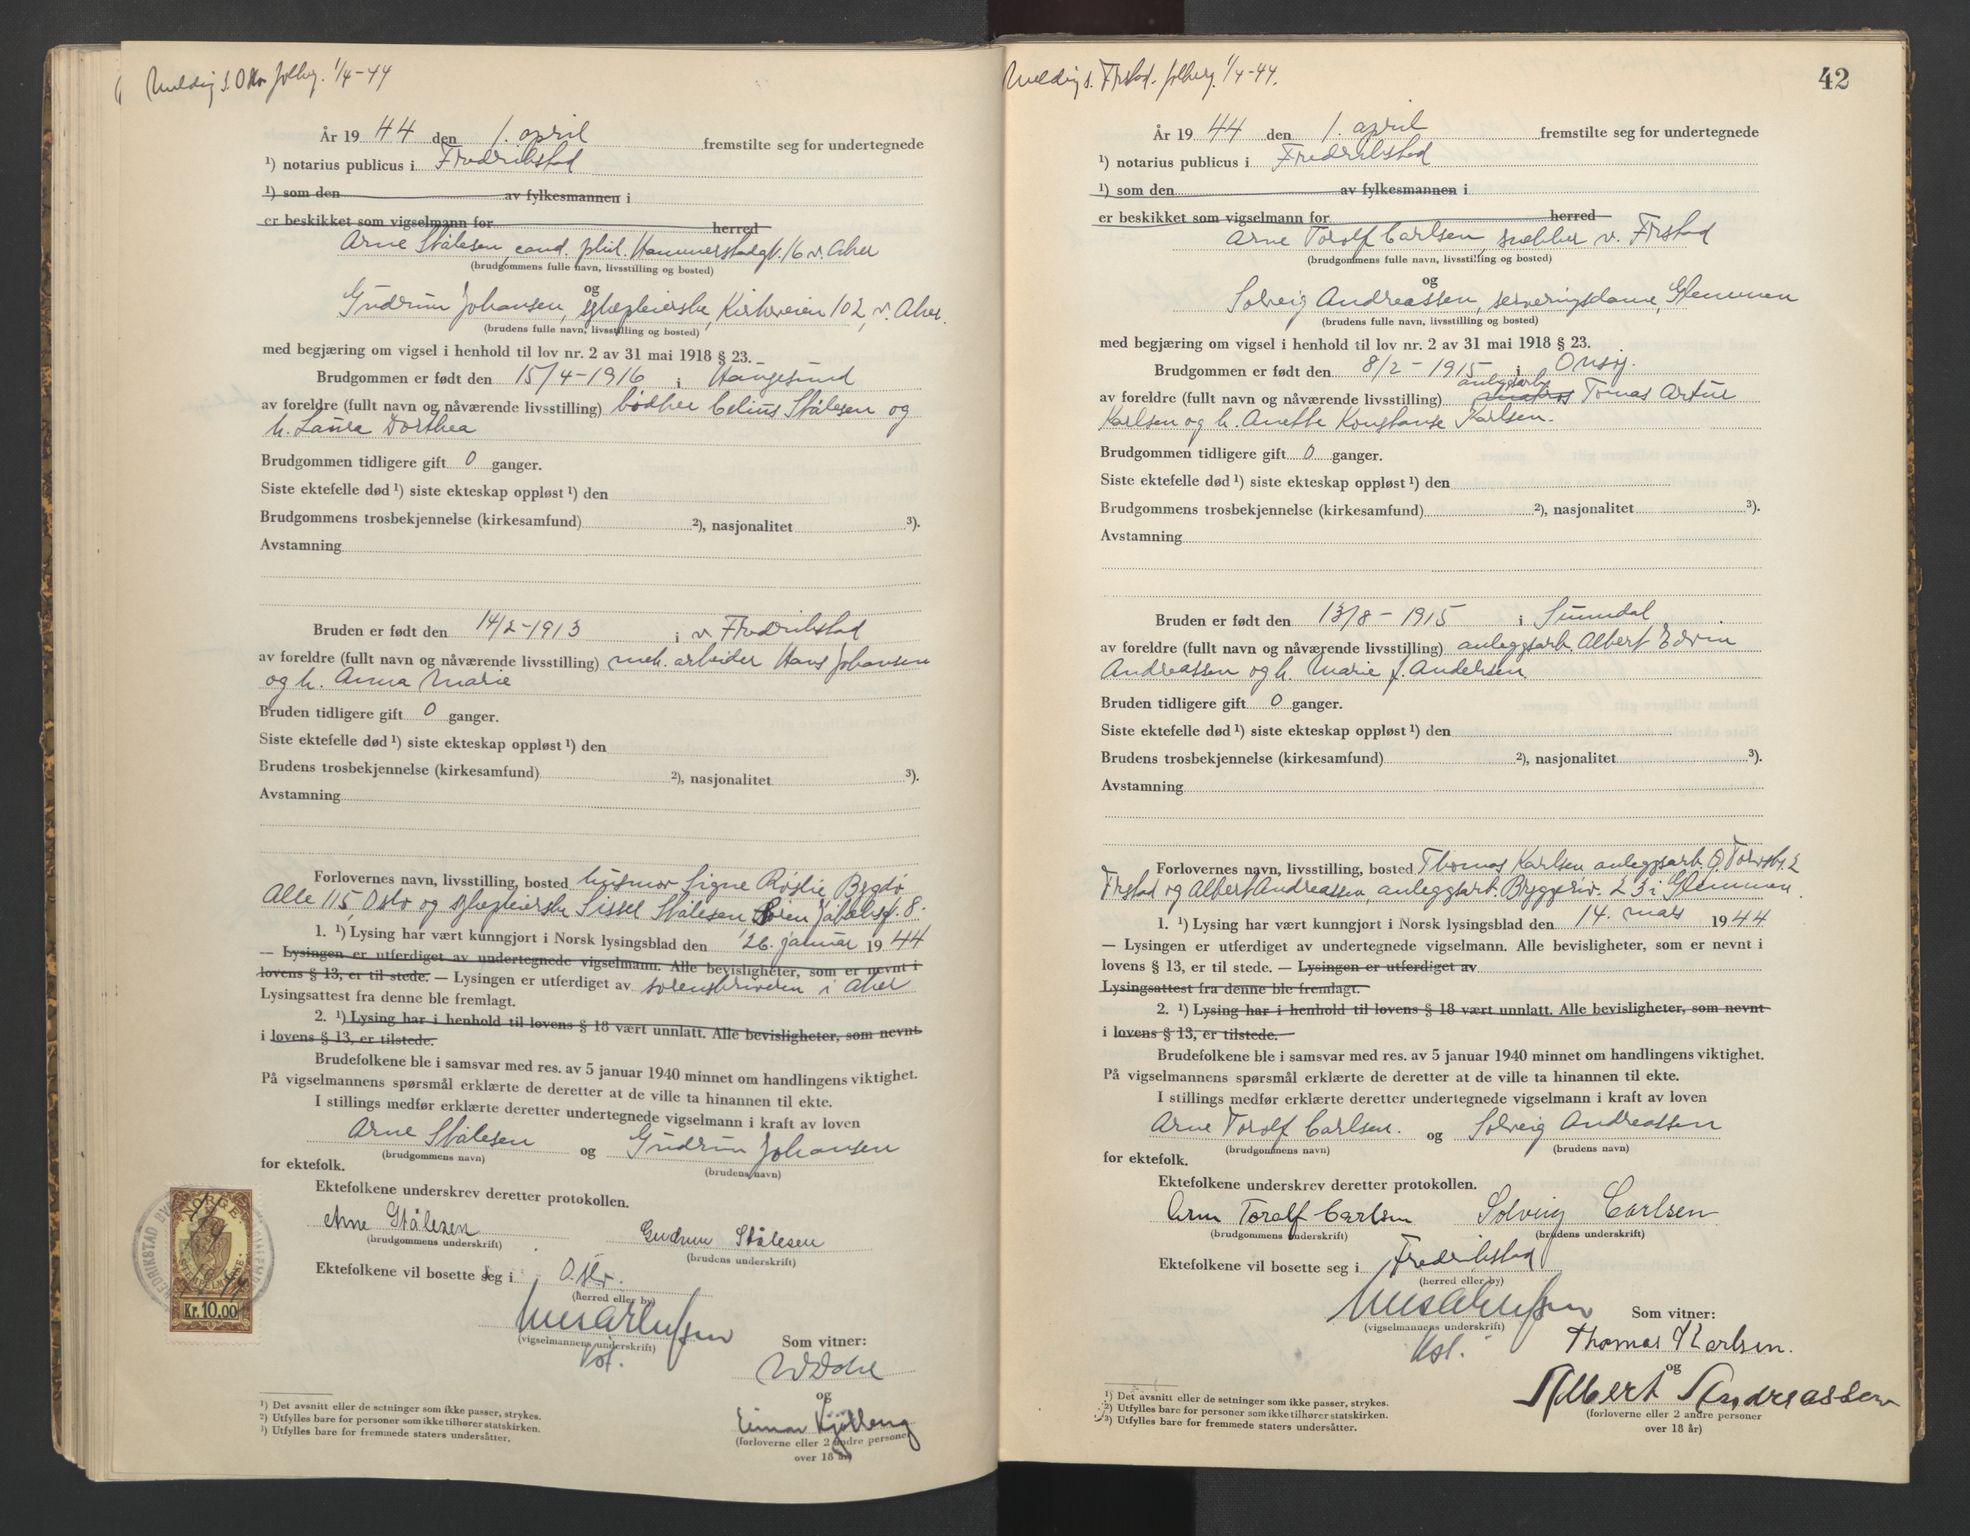 Melding s. Oslo folkreg. 1/4-44
År 1944 den 1. april fremstilte seg for undertegnede
¹) notarius publicus i Fredrikstad
¹) som den av fylkesmannen i
er beskikket som vigselmann for herred
Arne Stålesen, cand. phil. Hammerstadgt. 16 v. Aker
(brudgommens fulle navn, livsstilling og bosted)
og
Gudrun Johansen, sykepleierske, Kirkeveien 102, v. Aker.
(brudens fulle navn, livsstilling og bosted)
med begjæring om vigsel i henhold til lov nr. 2 av 31 mai 1918 § 23.
Brudgommen er født den 15/4-1916 i Haugesund
av foreldre (fullt navn og nåværende livsstilling) bødker Celius Stålesen og
h. Laura Dorthea
Brudgommen tidligere gift 0 ganger.
Siste ektefelle død ¹) siste ekteskap oppløst ¹) den
Brudgommens trosbekjennelse (kirkesamfund) ²), nasjonalitet ³).
Avstamning
Bruden er født den 14/2-1913 i v. Fredrikstad
av foreldre (fullt navn og nåværende livsstilling) mek. arbeider Hans Johansen
og h. Anna Marie
Bruden tidligere gift 0 ganger.
Siste ektefelle død ¹) siste ekteskap oppløst ¹) den
Brudens trosbekjennelse (kirkesamfund) ²), nasjonalitet ³).
Avstamning
Forlovernes navn, livsstilling, bosted husmor Signe Røslie Bygdø
Alle 115, Oslo og sykepleierske Sissel Stålesen Søren Jaabeksgt. 8.
1. ¹) Lysing har vært kunngjort i Norsk lysingsblad den 26. januar 1944
— Lysingen er utferdiget av undertegnede vigselmann. Alle bevisligheter, som er nevnt i
lovens § 13, er til stede. — Lysingen er utferdiget av sorenskriveren i Aker
Lysingsattest fra denne ble fremlagt.
2. ¹) Lysing har i henhold til lovens § 18 vært unnlatt. Alle bevisligheter, som nevnt
i lovens § 13, er tilstede.
Brudefolkene ble i samsvar med res. av 5 januar 1940 minnet om handlingens viktighet.
På vigselmannens spørsmål erklærte de deretter at de ville ta hinannen til ekte.
I stillings medfør erklærte deretter undertegnede vigselmann i kraft av loven
Arne Stålesen og Gudrun Johansen
(brudgommens navn) (brudens navn)
for ektefolk.
Ektefolkene underskrev deretter protokollen.
Arne Stålesen Gudrun Stålesen
(brudgommens underskrift) (brudens underskrift)
Ektefolkene vil bosette seg i Oslo.
(herred eller by)
(vigselmannens underskrift) Som vitner:
og
Einar Kjølberg
(forloverne eller 2 andre personer
over 18 år)
¹) Det avsnitt eller de setninger som ikke passer, strykes.
²) Utfylles bare for personer som ikke tilhører statskirken.
³) Utfylles bare for fremmede staters undersåtter.
NORGE
STEMPELMERKE
Kr. 10.00
Melding s. Frstad. folkereg. 1/4-44.
42
År 1944 den 1. april fremstilte seg for undertegnede
¹) notarius publicus i Fredrikstad
¹) som den av fylkesmannen i
er beskikket som vigselmann for herred
Arne Torolf Carlsen, snekker v. Frstad
(brudgommens fulle navn, livsstilling og bosted)
og
Solveig Andreassen, serveringsdame, Glemmen
(brudens fulle navn, livsstilling og bosted)
med begjæring om vigsel i henhold til lov nr. 2 av 31 mai 1918 § 23.
Brudgommen er født den 8/2-1915 i Onsøy.
anleggsarb.
av foreldre (fullt navn og nåværende livsstilling) Tomas Artur
Karlsen og h. Anette Konstanse Karlsen.
Brudgommen tidligere gift 0 ganger.
Siste ektefelle død ¹) siste ekteskap oppløst ¹) den
Brudgommens trosbekjennelse (kirkesamfund) ²), nasjonalitet ³).
Avstamning
Bruden er født den 13/8-1915 i Sunndal
av foreldre (fullt navn og nåværende livsstilling) anleggsarb. Albert Edvin
Andreassen og h. Marie f. Andersen.
Bruden tidligere gift 0 ganger.
Siste ektefelle død ¹) siste ekteskap oppløst ¹) den
Brudens trosbekjennelse (kirkesamfund) ²), nasjonalitet ³).
Avstamning
Forlovernes navn, livsstilling, bosted Thomas Karlsen anleggsarb.
Frstad og Albert Andreassen, anleggsarb. Byggeriv. 23 i Glemmen.
1. ¹) Lysing har vært kunngjort i Norsk lysingsblad den 14. mars 1944
— Lysingen er utferdiget av undertegnede vigselmann. Alle bevisligheter, som er nevnt i
lovens § 13, er til stede. — Lysingen er utferdiget av
Lysingsattest fra denne ble fremlagt.
2. ¹) Lysing har i henhold til lovens § 18 vært unnlatt. Alle bevisligheter, som nevnt
i lovens § 13, er tilstede.
Brudefolkene ble i samsvar med res. av 5 januar 1940 minnet om handlingens viktighet.
På vigselmannens spørsmål erklærte de deretter at de ville ta hinannen til ekte.
I stillings medfør erklærte deretter undertegnede vigselmann i kraft av loven
Arne Torolf Carlsen. og Solveig Andreassen
(brudgommens navn) (brudens navn)
for ektefolk.
Ektefolkene underskrev deretter protokollen.
Arne Toralf Carlsen Solveig Carlsen
(brudgommens underskrift) (brudens underskrift)
Ektefolkene vil bosette seg i Fredrikstad
(herred eller by)
Som vitner:
(vigselmannens underskrift)
Thomas Karlsen.
og
Albert Andreassen
(forloverne eller 2 andre personer
over 18 år)
¹) Det avsnitt eller de setninger som ikke passer, strykes.
²) Utfylles bare for personer som ikke tilhører statskirken.
³) Utfylles bare for fremmede staters undersåtter.